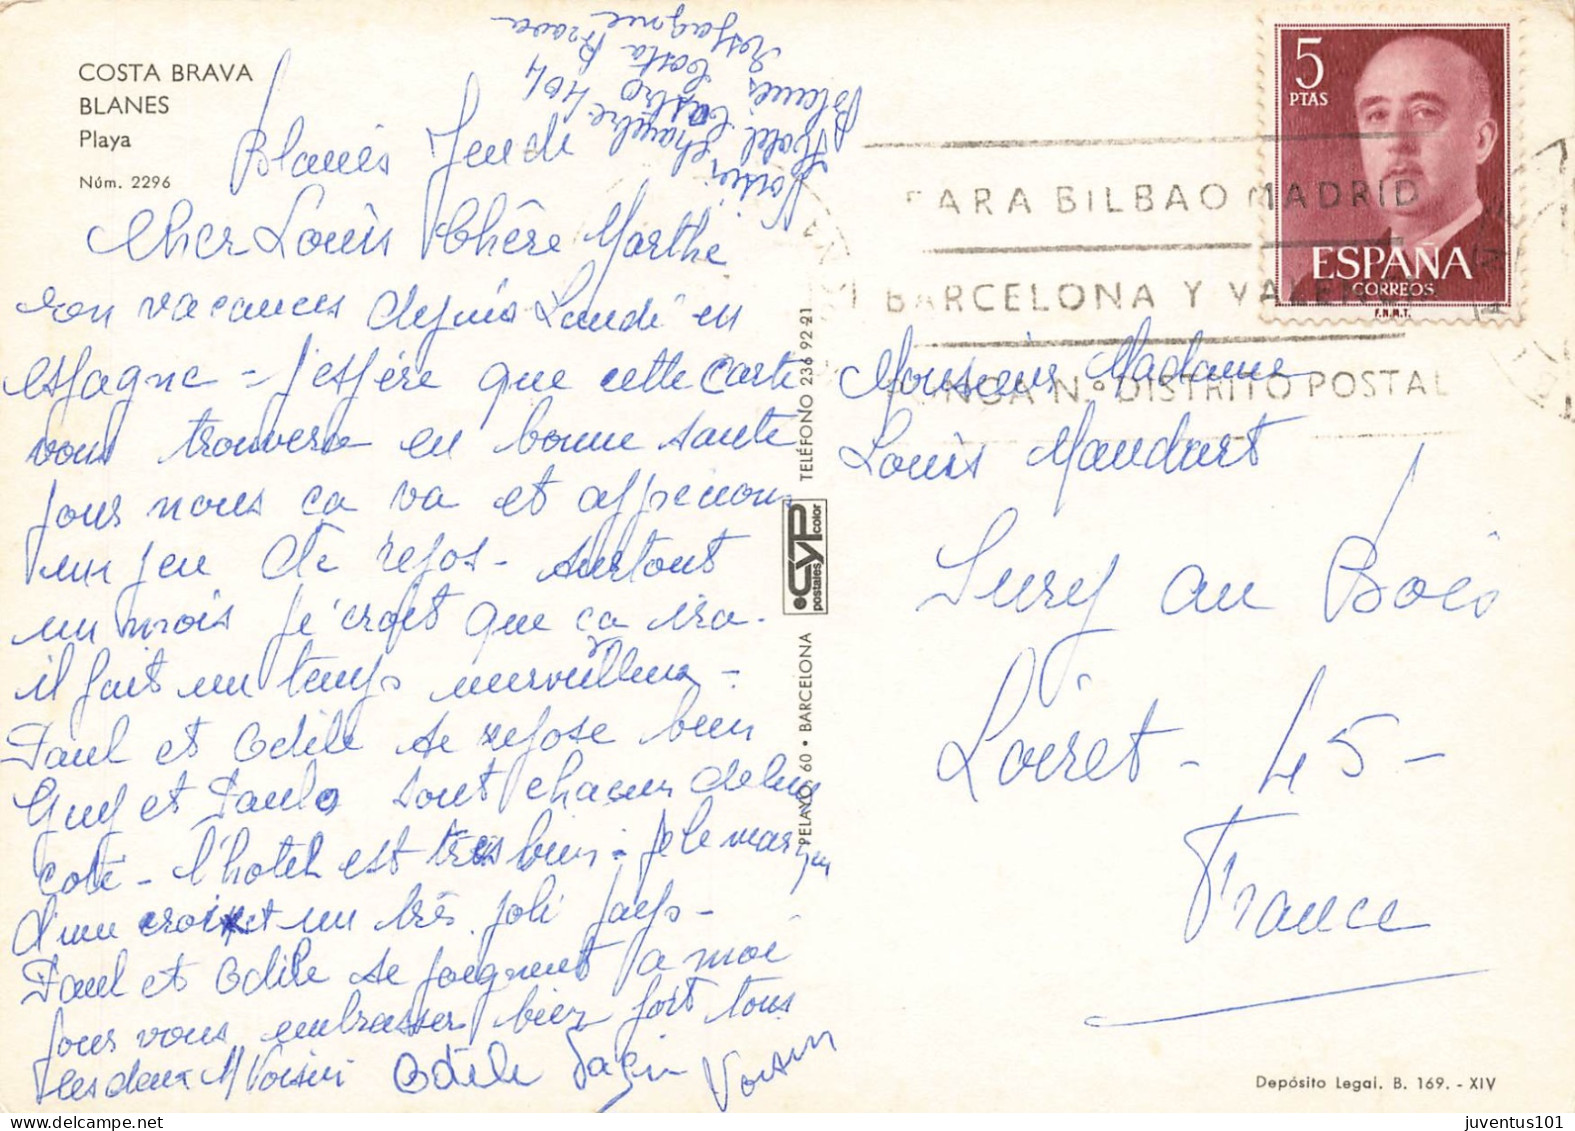 COSTA BRAVA
BLANES
Playa
Núm. 2296
Voisin chambre 404
Hotel Castro
Blanes Costa Brava
Espagne
Blanes Jeudi
Cher Louis Chère Marthe
en vacances depuis Lundi en
Espagne - j'espère que cette carte
vous trouvera en bonne sante
pour nous ca va et apprenons
un peu de repos - surtout
un mois je croit que ça ira.
il fait un temps merveilleux -
Paul et Odile se repose bien
Guy et Paulo sont chacun de leur
coté - l'hotel est très bien - je le marque
d'une croix et un très joli pays -
Paul et Odile se joignent a moi
pour vous embrasser bien fort tous
les deux M Voisin Odile
Voisin
5
PTAS
ESPAÑA
CORREOS
F.N.M.T.
PARA BILBAO MADRID
BARCELONA Y VALENC
PONGA N.º DISTRITO POSTAL
Monsieur Madame
Louis Maudart
Sury au Bois
Loiret - 45 -
France
PELAYO, 60 • BARCELONA
CYP
postales color
TELÉFONO 236 92 21
Depósito Legal. B. 169. - XIV
juventus101